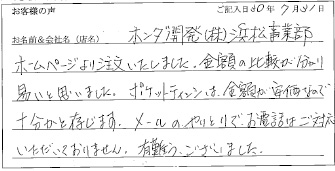 お客様の声 ご記入日30年7月31日
お名前&会社名(店名) ホンダ開発(株)浜松営業部
ホームページより注文いたしました。金額の比較が分かり
易いと思いました。ポケットティッシュは、金額が安価なので
十分かと存じます。メールのやりとりでお電話はご対応
いただいておりません。有難うございました。